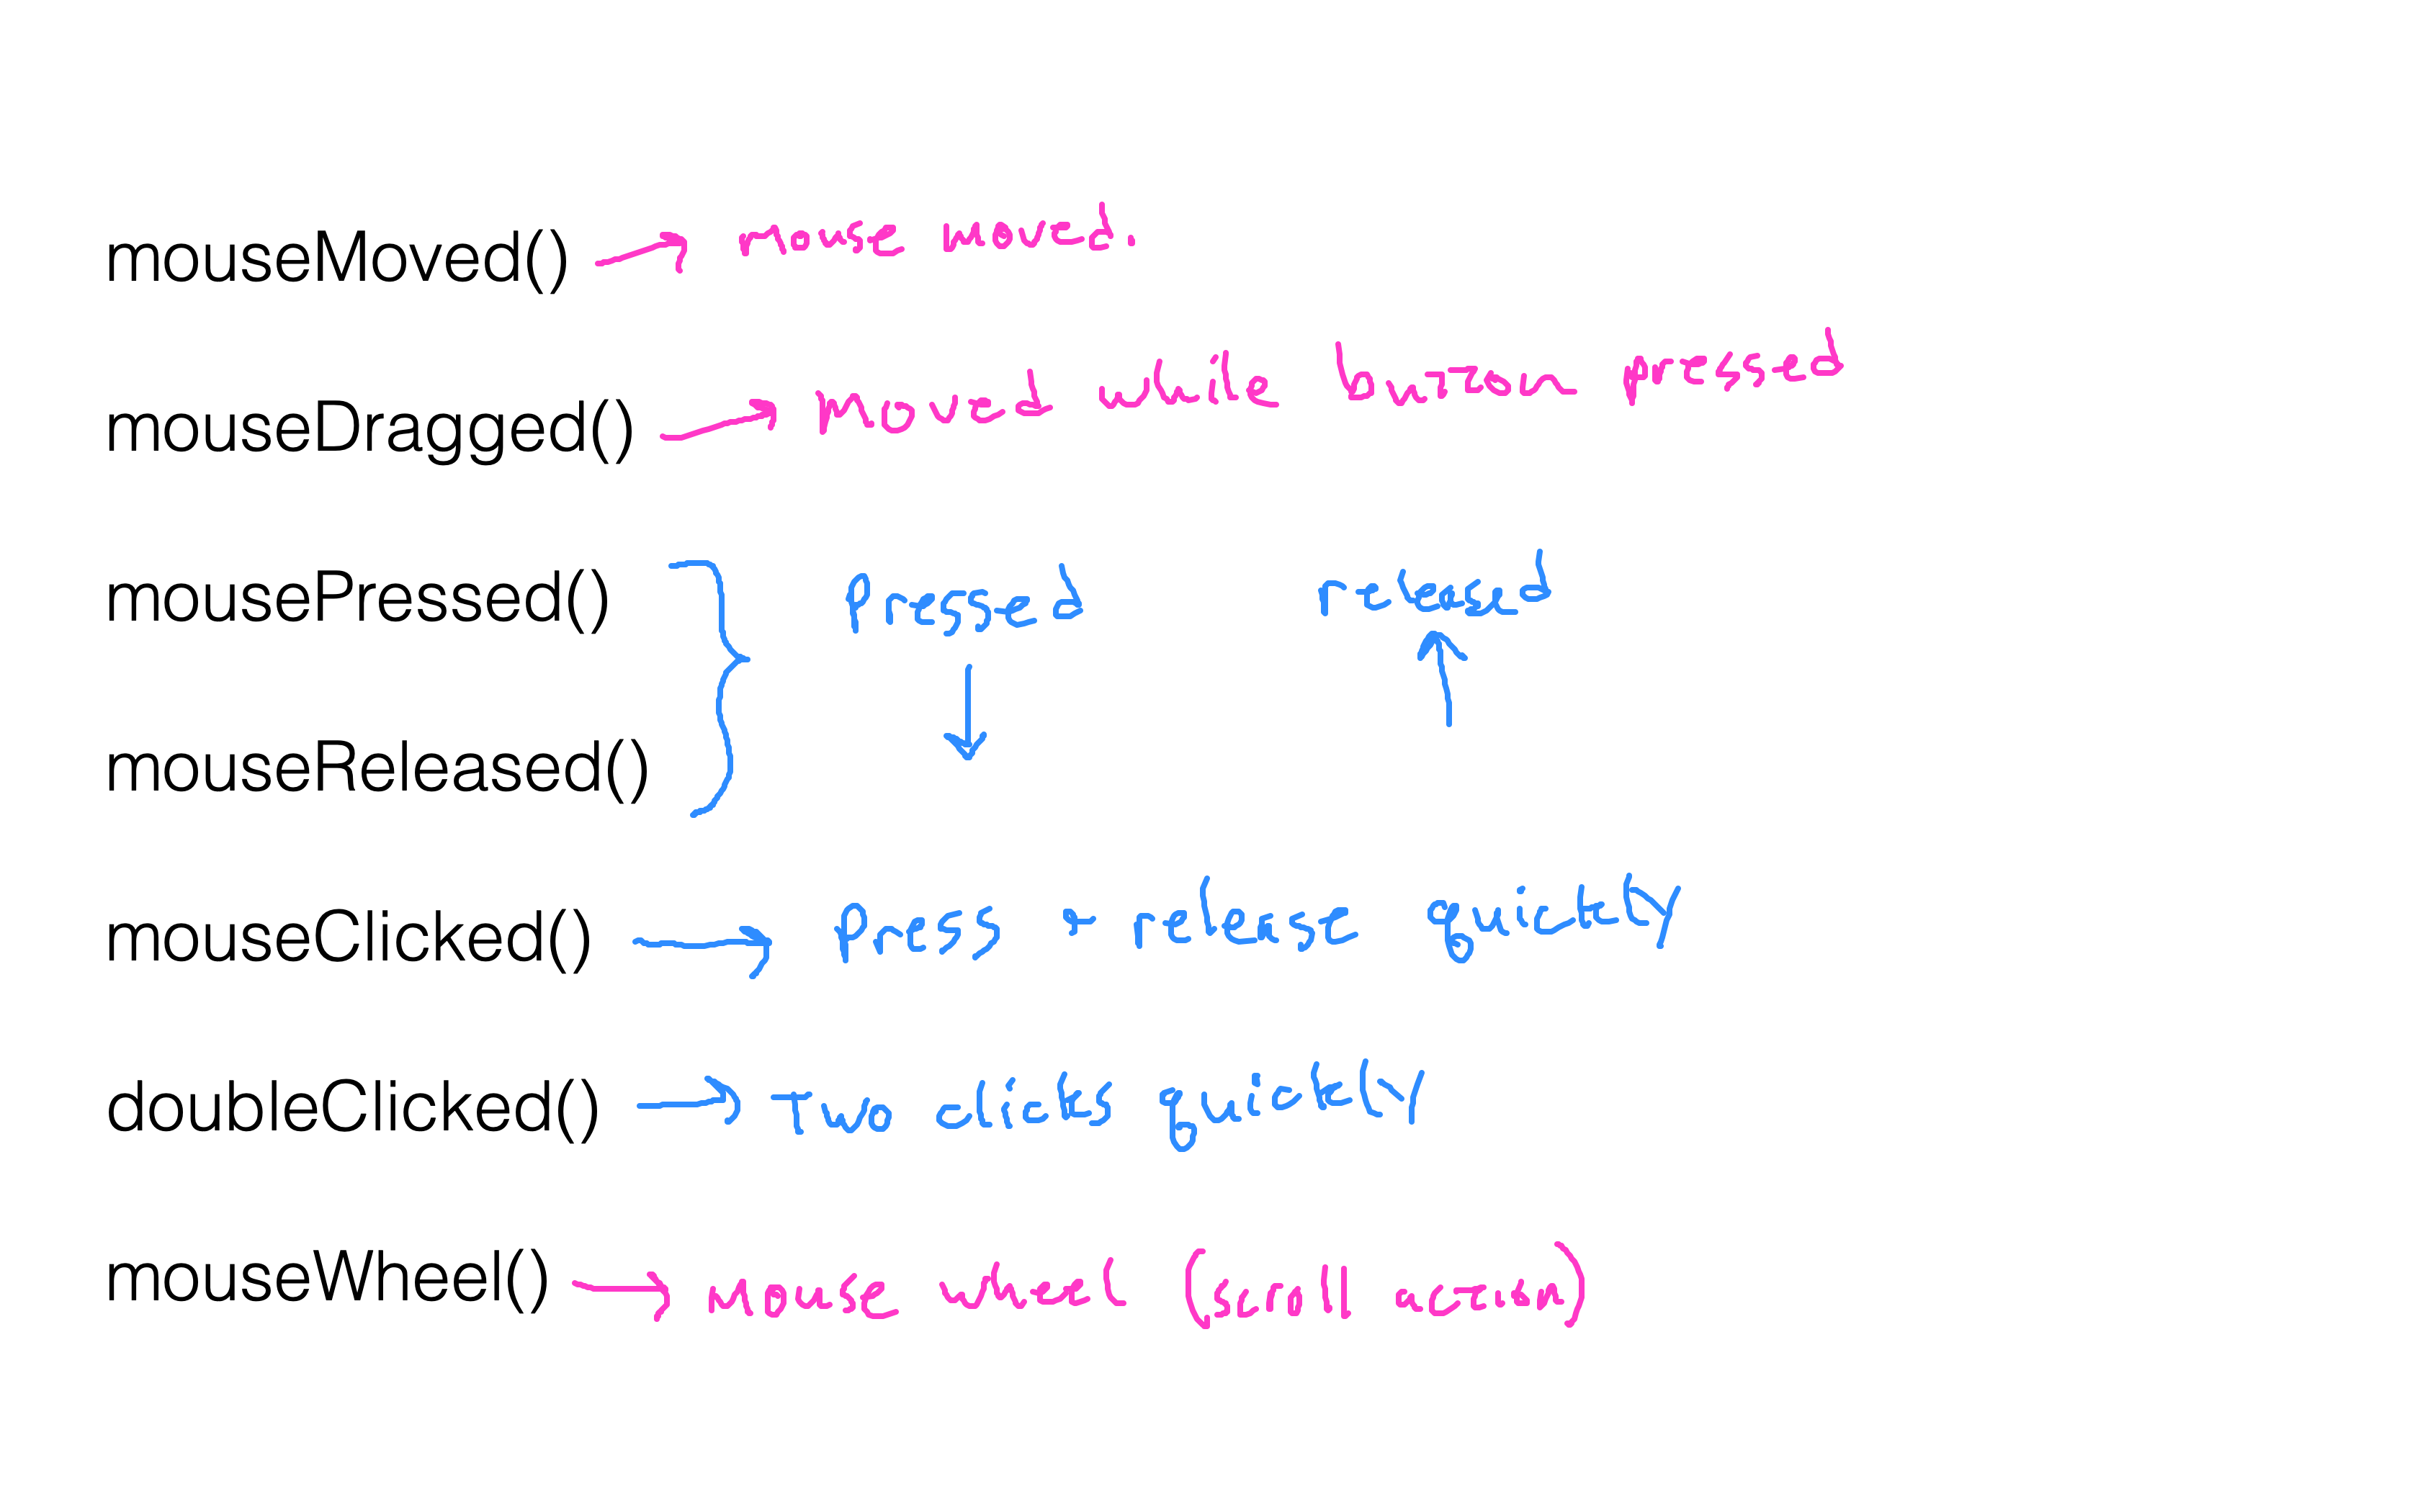 mouseMoved() → mouse moved.
mouseDragged() → moved while button pressed
mousePressed() pressed released
mouseReleased()
mouseClicked() → press & release quickly
doubleClicked() → two clicks quickly
mouseWheel() → mouse wheel (scroll action)